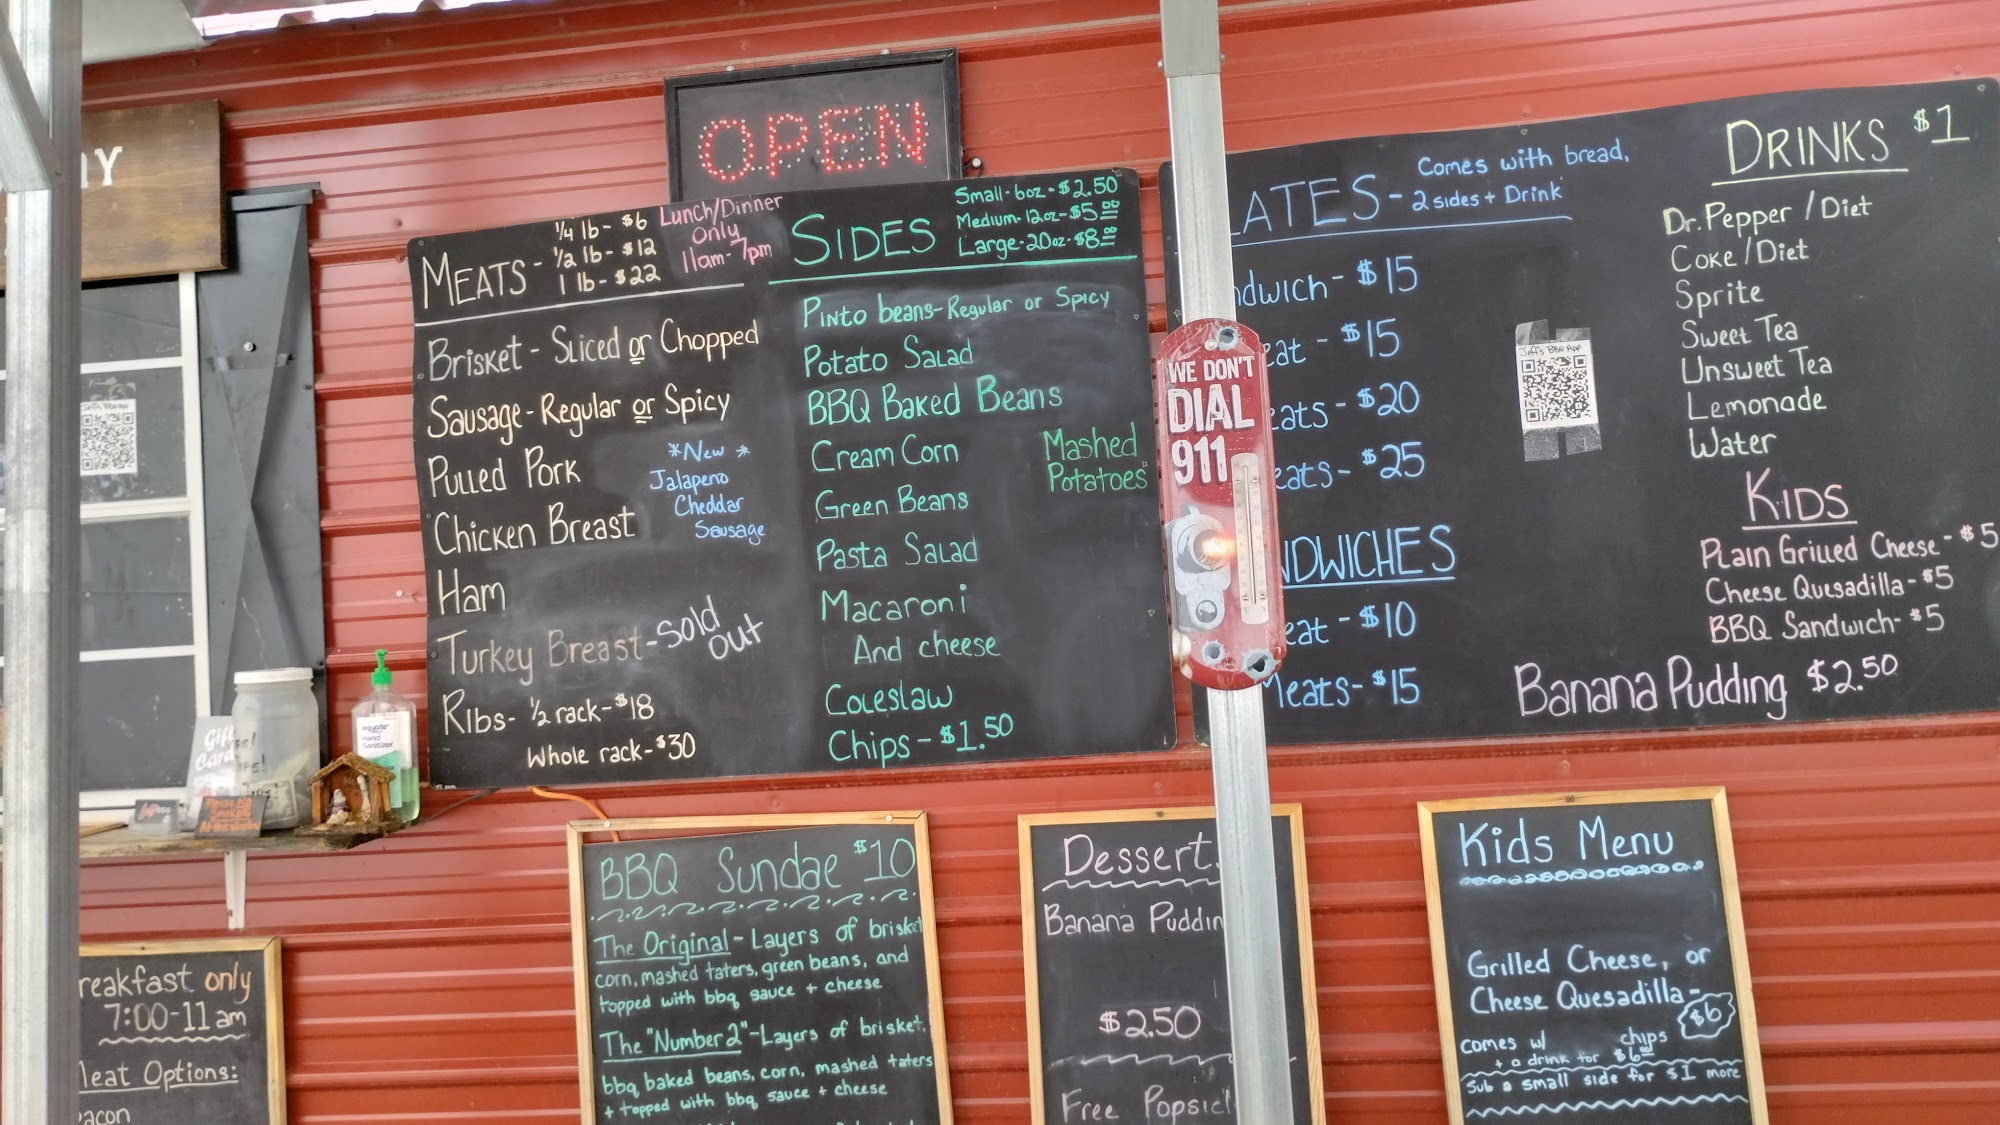 OPEN
MEATS -
1/4 lb - $6
1/2 lb - $12
1 lb - $22
Lunch/Dinner
Only
11am - 7pm
BRISKET - SLICED or CHOPPED
SAUSAGE - REGULAR or SPICY
PULLED PORK
*New*
Jalapeno
Cheddar
Sausage
CHICKEN BREAST
HAM
TURKEY BREAST - Sold
out
RIBS - 1/2 rack - $18
Whole rack - $30
SIDES
Small - 6oz - $2.50
Medium - 12oz - $5.00
Large - 20oz - $8.00
PINTO beans - REGULAR or SPICY
POTATO SALAD
BBQ BAKED BEANS
CREAM CORN
MASHED
POTATOES
GREEN BEANS
PASTA SALAD
MACARONI
And cheese
COLESLAW
CHIPS - $1.50
LATES - Comes with bread,
2 sides + Drink
ndwich - $15
eat - $15
eats - $20
eats - $25
NDWICHES
eat - $10
Meats - $15
Jeff's BBQ App
WE DON'T
DIAL
911
DRINKS $1
Dr. Pepper / Diet
Coke / Diet
Sprite
Sweet Tea
Unsweet Tea
Lemonade
Water
KIDS
Plain Grilled Cheese - $5
Cheese Quesadilla - $5
BBQ Sandwich - $5
Banana Pudding $2.50
Gift
Card
equate
Hand
Sanitizer
reakfast only
7:00-11am
Meat Options:
acon
BBQ Sundae $10
The Original - Layers of brisket
corn, mashed taters, green beans, and
topped with bbq sauce + cheese
The "Number 2" - Layers of brisket,
bbq baked beans, corn, mashed taters
+ topped with bbq sauce + cheese
Dessert
Banana Puddin
$2.50
Free Popsicl
Kids Menu
Grilled Cheese, or
Cheese Quesadilla -
$6
comes w/ chips
+ a drink for $6.00
Sub a small side for $1 more